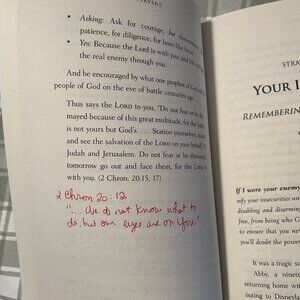 ERVENT
• Asking: Ask for courage, for discernment,
patience, for diligence, for laser-like
• Yes: Because the LORD is with you, and
the real enemy through you
And be encouraged by what one prophet of God
people of God on the eve of battle centuries ago
Thus says the LORD to you, "Do not fear or be dis-
mayed because of this great multitude, for the battle
is not yours but God's. . . . Station yourselves,
and see the salvation of the LORD on your behalf, O
Judah and Jerusalem. Do not fear or be dismayed;
tomorrow go out and face them, for the LORD is
with you. (2 Chron. 20:15, 17)
2 Chron 20:12
"... We do not know what to
do but our eyes are on You"
STRA
YOUR
REMEMBERIN
If I were your enemy
ify your insecurities
disabling and disarming
free, from being who G
to ensure that you ne
you'll doubt the power
It was a tragic s
Abby, a ninete
returning home wi
outing to Disney